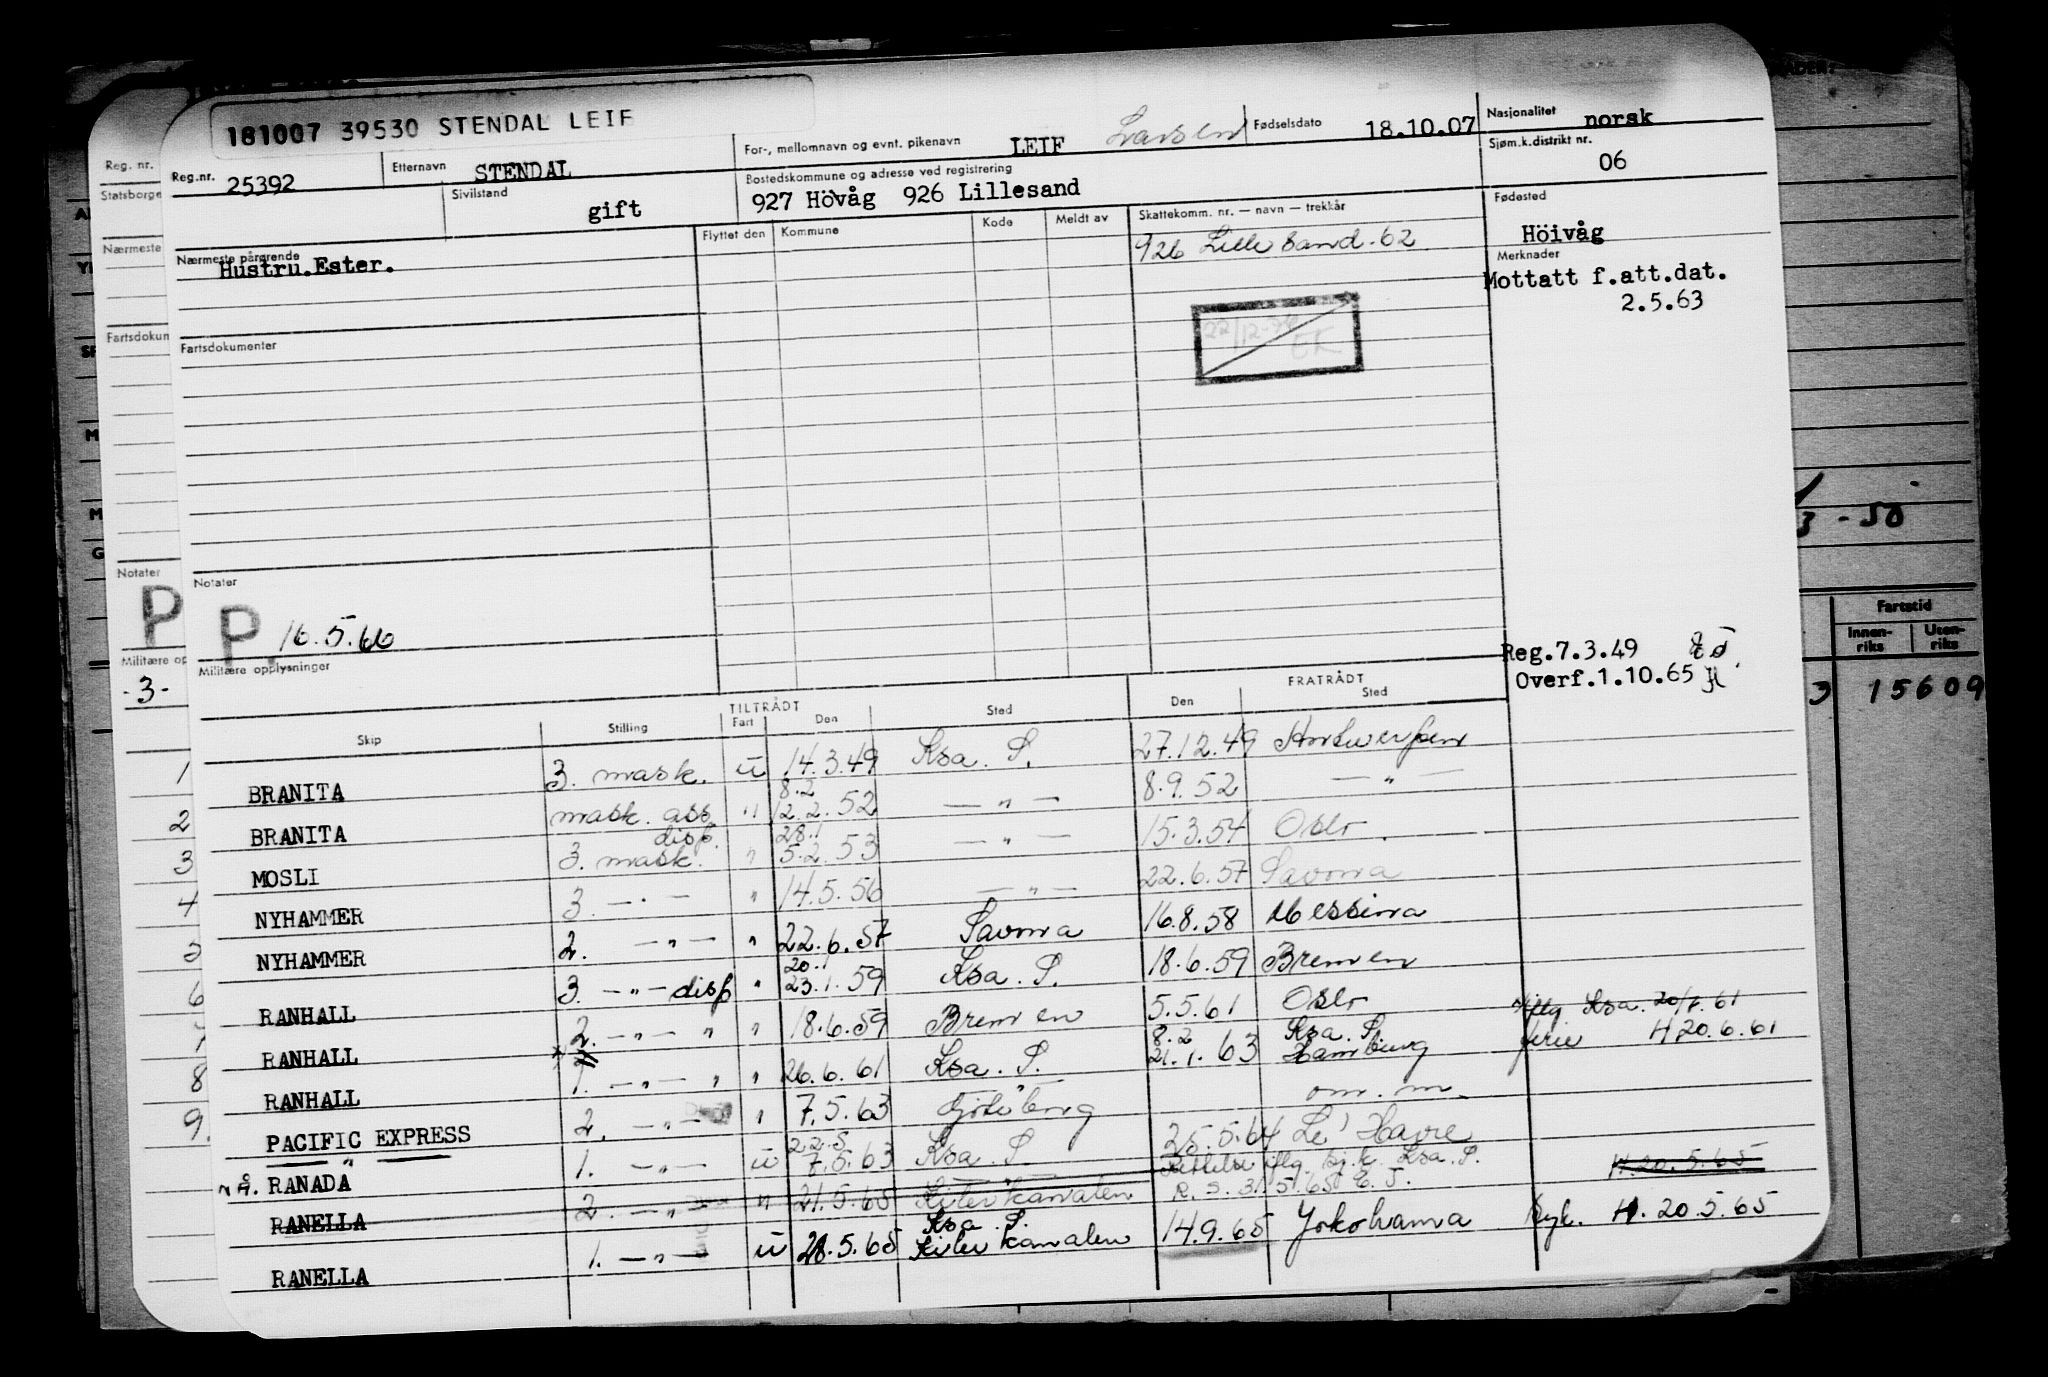 181007 39530 STENDAL LEIF
Reg.nr. 25392 Etternavn STENDAL For-, mellomnavn og evnt. pikenavn LEIF Larsen Fødselsdato 18.10.07 Nasjonalitet norsk
Sivilstand gift Bostedskommune og adresse ved registrering 927 Hövåg 926 Lillesand Sjøm.k.distrikt nr. 06
Nærmeste pårørende Hustru.Ester. Flyttet den Kommune Kode Meldt av Skattekomm. nr. — navn — trekkår 926 Lillesand-62 Fødested Höivåg
Merknader
Mottatt f.att.dat.
2.5.63
22/12-
EK
Fartsdokumenter
Notater
P. 16.5.66
Militære opplysninger
Reg.7.3.49
Overf.1.10.65
TILTRÅDT FRATRÅDT
Skip Stilling Fart Den Sted Den Sted
BRANITA 3. mask. u 14.3.49 Ksa. S. 27.12.49 Antwerpen
8.2
BRANITA mask. ass. " 12.2.52 — " — 8.9.52 — " —
disp. 28.1
MOSLI 3. mask. " 5.2.53 — " — 15.3.54 Oslo.
NYHAMMER 3. — " — " 14.5.56 — " — 22.6.57 Savona
NYHAMMER 2. — " — " 22.6.57 Savona 16.8.58 Messina
20.1
RANHALL 3. — " — disp " 23.1.59 Ksa. S. 18.6.59 Bremen
RANHALL 2. — " — " " 18.6.59 Bremen 5.5.61 Oslo iflg Ksa. 20/6.61
8.2 Ksa. S.
RANHALL 1. — " — " " 26.6.61 Ksa. S. 21.1.63 Hamburg ferie H 20.6.61
PACIFIC EXPRESS 2. — " — " 7.5.63 Göteborg om. m.
22.5
nå. RANADA 1. — " — u 7.5.63 Ksa. S. 25.5.64 Le' Havre
RANELLA 2. — " — " 21.5.65 Kielerkanalen Rettelse iflg. sj.k. Ksa. S. H.20.5.65
R.S. 31.5.65 E.J.
Ksa. S.
RANELLA 1. — " — u 28.5.65 Kielerkanalen 14.9.65 Yokohama Syk. H. 20.5.65
Reg. nr.
Statsborge
Nærmeste
Fartsdokum
Notater
P
Militære op
-3-
1
2
3
4
5
6
7
8
9.
3 -50
Fartstid
Innen-riks Uten-riks
3 15609